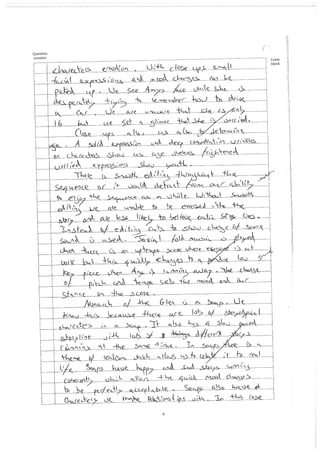 Question
number
Leave
blank
characters emotion. With close ups small
facial expressions and mood changes can be
picked up. We see Amy's face while she is
desperately trying to remember how to drive
a car. We are unaware that she is only
16 but we get a glimse that she is worried.
Close ups allow us also to determine
age. A solid expression and deep concentration wrinkles
on characters show us age whereas frightened
worried expressions show youth.
There is smooth editing throughout the
sequence or it would detract from our ability
to enjoy the sequence as a whole. Without smooth
editing we are unable to be emersed into the
story and are less likely to believe entic lines.
Instead of editing cuts to show change of scene
sound is used. Initial folk music is played
when there is an uptempo scene where everyone is at
work but this quickly changes to a low
key piece when Amy is running away. The change
of pitch and tempo sets the mood and our
stance on the scene.
Monarch of the Glen is a soap. We
know this because there are lots of stereotypical
characters in a soap. It also has a slow paced
storyline with lots of things different stories
running at the same time. In soaps there is a
theme of realism which allows us to relate it to real
life. Soaps have happy and sad storys running
which allows the quick mood changes
to be perfectly acceptable. Soaps also have
characters we make relationships with. In this case